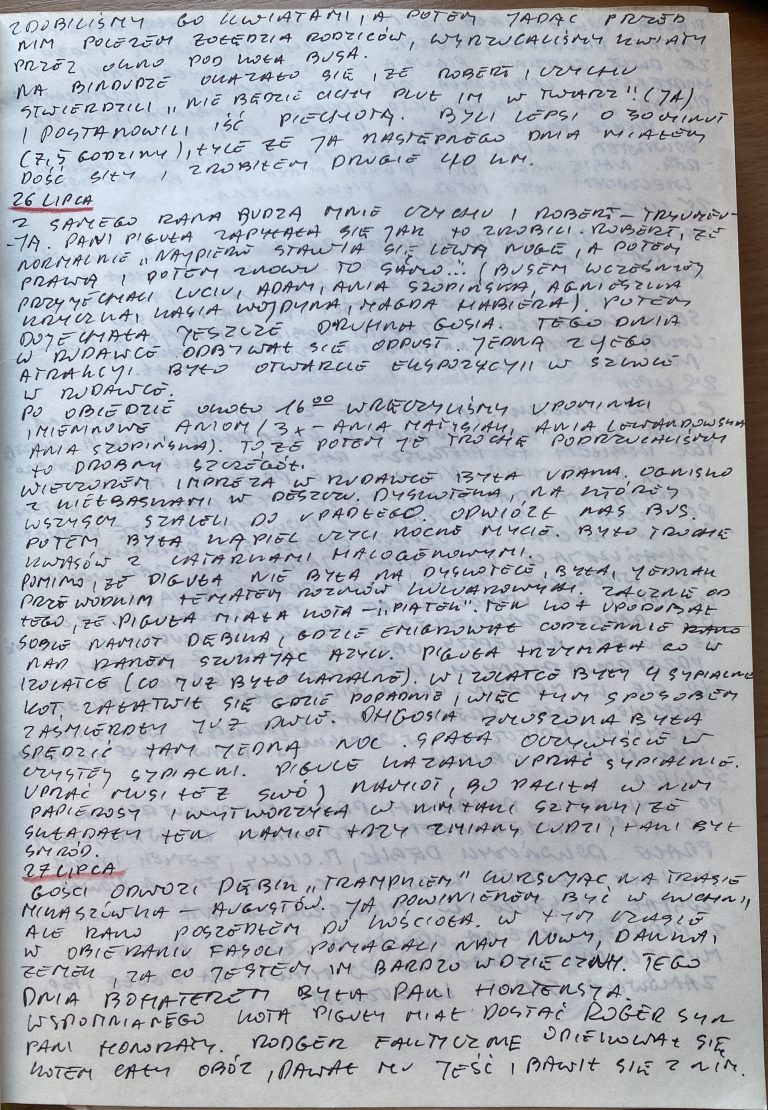 ZDOBILIŚMY GO KWIATAMI, A POTEM JADĄC PRZED
NIM POLEZEM ŻOŁĘDZIA RODZICÓW, WYRZUCALIŚMY KWIATY
PRZEZ OKNO POD KOŁA BUSA.
NA BINDUDZE OKAZAŁO SIĘ, ŻE ROBERT I CZYCHU
STWIERDZILI „NIE BĘDZIE CICHY PLUŁ IM W TWARZ". (JA)
I POSTANOWILI IŚĆ PIECHOTĄ. BYLI LEPSI O 30 MINUT
(7,5 GODZINY), TYLE ŻE JA NASTĘPNEGO DNIA MIAŁEM
DOŚĆ SIŁY I ZROBIŁEM DRUGIE 40 KM.
26 LIPCA
Z SAMEGO RANA BUDZĄ MNIE CZYCHU I ROBERT – TRYUMFU-
-JĄ. PANI PIGUŁA ZAPYTAŁA SIĘ JAK TO ZROBILI. ROBERT, ŻE
NORMALNIE „NAJPIERW STAWIA SIĘ LEWĄ NOGĘ, A POTEM
PRAWĄ I POTEM ZNOWU TO SAMO..." (BUSEM WCZEŚNIEJ
PRZYJECHALI LUCIU, ADAM, ANIA SZOPIŃSKA, AGNIESZKA
KRYCZKA, KASIA WOJDYNA, MAGDA HABIERA). POTEM
DOJECHAŁA JESZCZE DRUHNA GOSIA. TEGO DNIA
W RUDAWCE ODBYWAŁ SIĘ ODPUST. JEDNĄ Z JEGO
ATRAKCJI BYŁO OTWARCIE EKSPOZYCJI W SZKOLE
W RUDAWCE.
PO OBIEDZIE OKOŁO 16⁰⁰ WRĘCZYLIŚMY UPOMINKI
IMIENINOWE ANIOM (3x – ANIA MATYSIAK, ANIA LEWANDOWSKA
ANIA SZOPIŃSKA). TO, ŻE POTEM JE TROCHĘ PODRZUCILIŚMY
TO DROBNY SZCZEGÓŁ.
WIECZOREM IMPREZA W RUDAWCE BYŁA UDANA. OGNISKO
Z KIEŁBASKAMI W DESZCZU. DYSKOTEKA, NA KTÓREJ
WSZYSCY SZALELI DO UPADŁEGO. ODWIÓZŁ NAS BUS.
POTEM BYŁA KĄPIEL CZYLI NOCNE MYCIE. BYŁO TROCHĘ
KWASÓW Z LATARKAMI HALOGENOWYMI.
POMIMO, ŻE PIGUŁA NIE BYŁA NA DYSKOTECE, BYŁA JEDNAK
PRZEWODNIM TEMATEM ROZMÓW KULUAROWYCH. ZACZNĘ OD
TEGO, ŻE PIGUŁA MIAŁA KOTA – „PIĄTEK". TEN KOT UPODOBAŁ
SOBIE NAMIOT DĘBIKA, GDZIE EMIGROWAŁ CODZIENNIE RANO
NAD RANEM SZUKAJĄC AZYLU. PIGUŁA TRZYMAŁA GO W
IZOLATCE (CO JUŻ BYŁO KARALNE). W IZOLATCE BYŁY 4 SYPIALNIE
KOT ZAŁATWIŁ SIĘ GDZIE POPADNIE, WIĘC TYM SPOSOBEM
ZAŚMIERDŁY JUŻ DWIE. DH GOSIA ZMUSZONA BYŁA
SPĘDZIĆ TAM JEDNĄ NOC. SPAŁA OCZYWIŚCIE W
CZYSTEJ SYPIALNI. PIGULE KAZANO UPRAĆ SYPIALNIE.
UPRAĆ MUSI TEŻ SWÓJ NAMIOT, BO PALIŁA W NIM
PAPIEROSY I WYTWORZYŁA W NIM TAKI SZTYNK, ŻE
SKŁADAŁY TEN NAMIOT TRZY ZMIANY LUDZI, TAKI BYŁ
SMRÓD.
27 LIPCA
GOŚCI ODWOZI DĘBIK „TRAMPKIEM" KURSUJĄC NA TRASIE
MIKASZÓWKA – AUGUSTÓW. JA POWINIENEM BYĆ W KUCHNI,
ALE RANO POSZEDŁEM DO KOŚCIOŁA. W TYM CZASIE
W OBIERANIU FASOLI POMAGALI NAM NOWY, DANKA,
ZEMEK, ZA CO JESTEM IM BARDZO WDZIĘCZNY. TEGO
DNIA BOHATEREM BYŁA PANI HORTENSJA.
WSPOMNIANEGO KOTA PIGUŁY MIAŁ DOSTAĆ ROGER SYN
PANI HONORATY. RODGER FAKTYCZNIE OPIEKOWAŁ SIĘ
KOTEM CAŁY OBÓZ, DAWAŁ MU JEŚĆ I BAWIŁ SIĘ Z NIM.